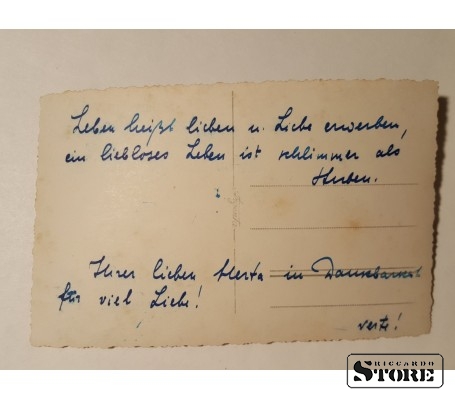 Leben heißt lieben u. Liebe erwerben,
ein liebloses Leben ist schlimmer als
Sterben.
Ihrer lieben Herta in Dankbarkeit
für viel Liebe!
verte!
RICCARDO
STORE